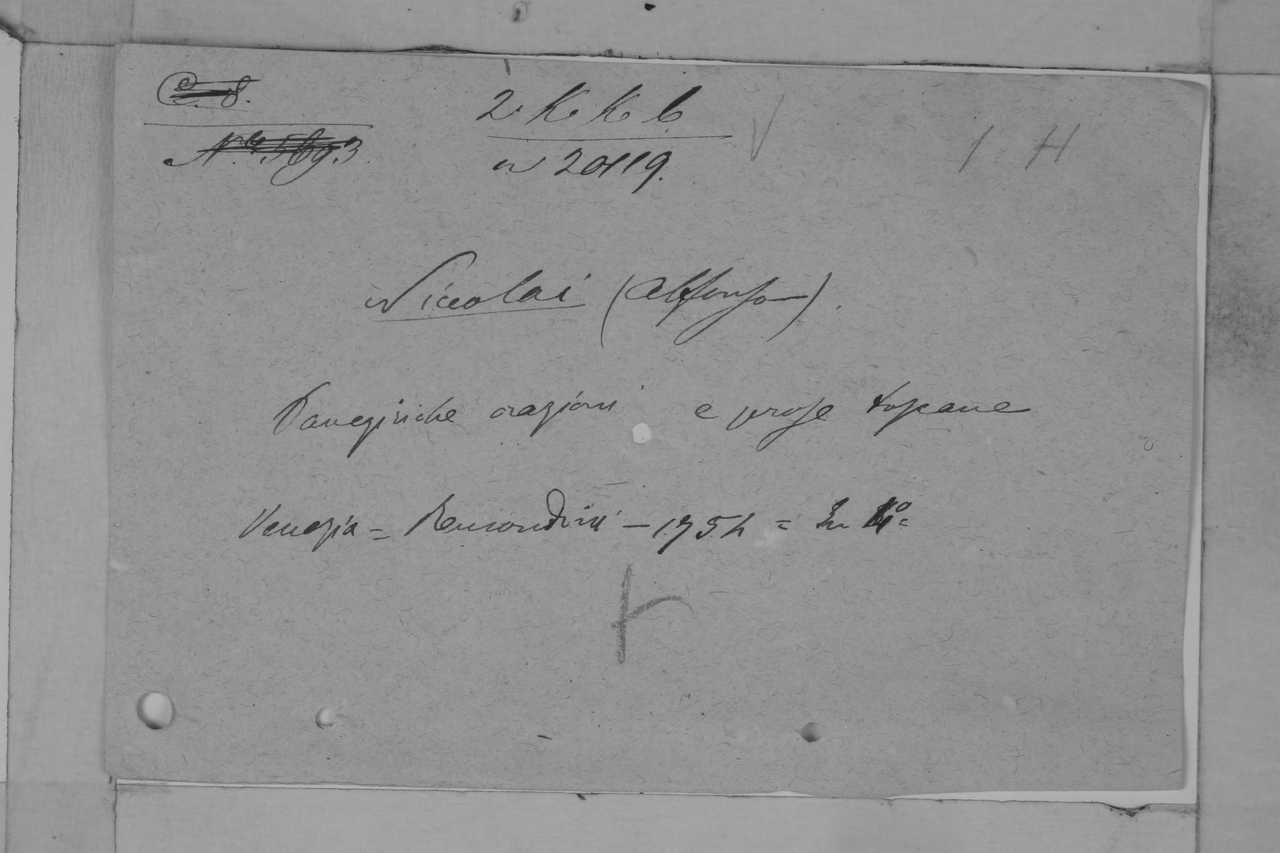 C. 8.
2. K. K. 6.
N. 20119.
1 H
Niccolai (Alfonso).
Panegiriche orazioni e prose toscane
Venezia = Remondini - 1754 = In 4° =